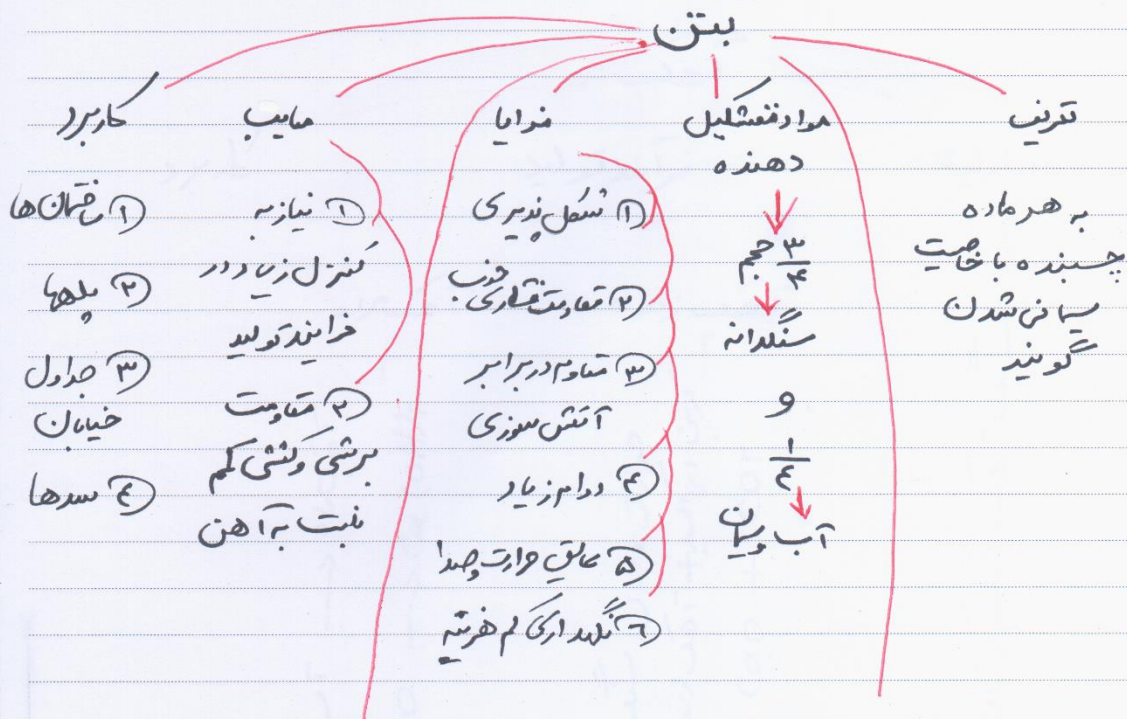 بتن
تعریف
به هر ماده
چسبنده با خاصیت
سیمانی شدن
گویند
مواد تشکیل
دهنده
۳/۴ حجم
سنگدانه
و
۱/۴
آب و سیمان
مزایا
۱ شکل پذیری
۲ مقاومت فشاری خوب
۳ مقاوم در برابر
آتش سوزی
۴ دوام زیاد
۵ عایق حرارت و صدا
۶ نگهداری کم هزینه
معایب
۱ نیاز به
کنترل زیاد در
فرایند تولید
۲ مقاومت
برشی و کششی کم
نسبت به آهن
کاربرد
۱ ساختمان ها
۲ پلها
۳ جداول
خیابان
۴ سدها